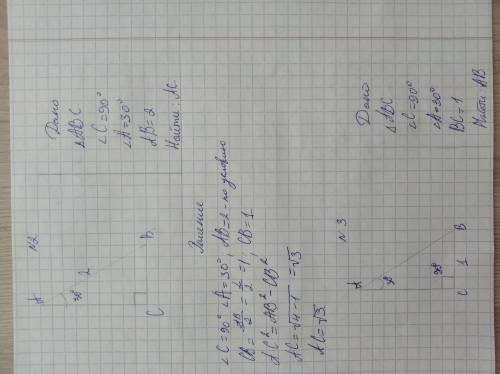 N2
A
30°
2
C
B
Дано
△ABC
∠C=90°
∠A=30°
AB=2
Найти: AC.
Решение
∠C=90° ∠A=30°, AB=2 - по условию
CB = AB/2 = 2/2 = 1, CB=1
AC² = AB² - CB²
AC = √4-1 = √3
AC = √3.
N3
A
C
1
B
Дано
△ABC
∠C=90°
∠A=30°
BC=1
Найти AB